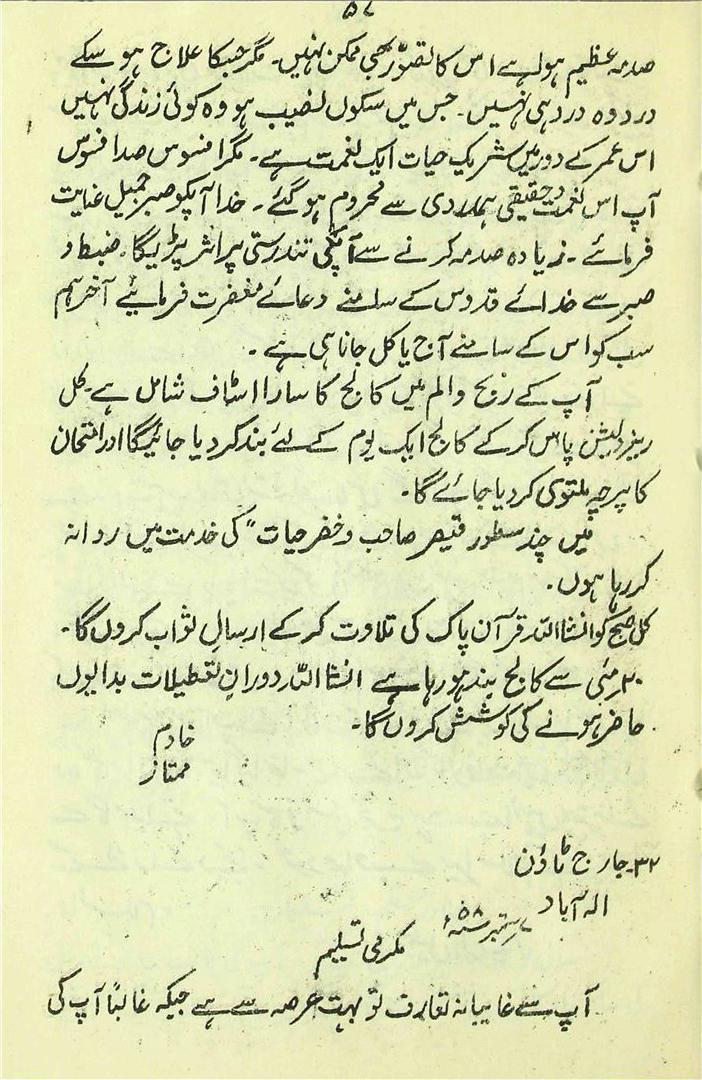 ۵۷
صدمہ عظیم ہولہے اس کا تصوّر بھی ممکن نہیں۔ مگر جسکا علاج ہو سکے
درد وہ درد ہی نہیں۔ جس میں سکوں نصیب ہو وہ کوئی زندگی نہیں
اس عمر کے دور میں شریکِ حیات ایک نعمت ہے۔ مگر افسوس صد افسوس
آپ اس نعمت و حقیقی ہمدردی سے محروم ہو گئے۔ خدا آپکو صبر جمیل عنایت
فرمائے۔ زیادہ صدمہ کرنے سے آپکی تندرستی پر اثر پڑیگا۔ ضبط و
صبر سے خدائے قدوس کے سامنے دعائے مغفرت فرمائیے آخر ہم
سب کو اس کے سامنے آج یا کل جانا ہی ہے۔
آپ کے رنج والم میں کالج کا سارا اسٹاف شامل ہے۔ کل
ریزولیشن پاس کر کے کالج ایک یوم کے لئے بند کر دیا جائیگا اور امتحان
کا پرچہ ملتوی کر دیا جائے گا۔
میں چند سطور قیصر صاحب و خضر حیات" کی خدمت میں روانہ
کر رہا ہوں۔
کل صبح کو انشااللہ قرآن پاک کی تلاوت کر کے ارسالِ ثواب کروں گا۔
۲۰ مئی سے کالج بند ہو رہا ہے انشااللہ دورانِ تعطیلات بدایوں
حاضر ہونے کی کوشش کروں گا۔
خادم
ممتاز
۳۲۔ جارج ٹاؤن
الہ آباد
۷ ستمبر ۵۸ء
مکرمی تسلیم
آپ سے غایبانہ تعارف تو بہت عرصہ سے ہے جبکہ غالباً آپ کی